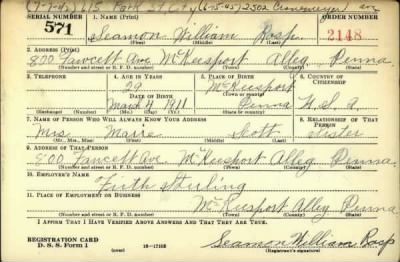 (7-7-43) 615 Park St City (6-15-45) 2502
SERIAL NUMBER 1. NAME (Print) ORDER NUMBER
571 Seamon William Rosp 2148
(First) (Middle) (Last)
2. ADDRESS (Print)
800 Fawcett Ave. McKeesport Alleg. Penna
(Number and street or R. F. D. number) (Town) (County) (State)
3. TELEPHONE 4. AGE IN YEARS 5. PLACE OF BIRTH 6. COUNTRY OF CITIZENSHIP
29 McKeesport
DATE OF BIRTH (Town or county)
March 4 1911 Penna U.S.A.
(Exchange) (Number) (Mo.) (Day) (Yr.) (State or country)
7. NAME OF PERSON WHO WILL ALWAYS KNOW YOUR ADDRESS 8. RELATIONSHIP OF THAT PERSON
Mrs. Marie Scott Sister
(Mr., Mrs., Miss) (First) (Middle) (Last)
9. ADDRESS OF THAT PERSON
800 Fawcett Ave. McKeesport Alleg. Penna.
(Number and street or R. F. D. number) (Town) (County) (State)
10. EMPLOYER'S NAME
Firth Sterling
11. PLACE OF EMPLOYMENT OR BUSINESS
McKeesport Alleg. Penna
(Number and street or R. F. D. number) (Town) (County) (State)
I AFFIRM THAT I HAVE VERIFIED ABOVE ANSWERS AND THAT THEY ARE TRUE.
REGISTRATION CARD
D. S. S. Form 1 (over) 16-17105 Seamon William Rosp
(Registrant's signature)